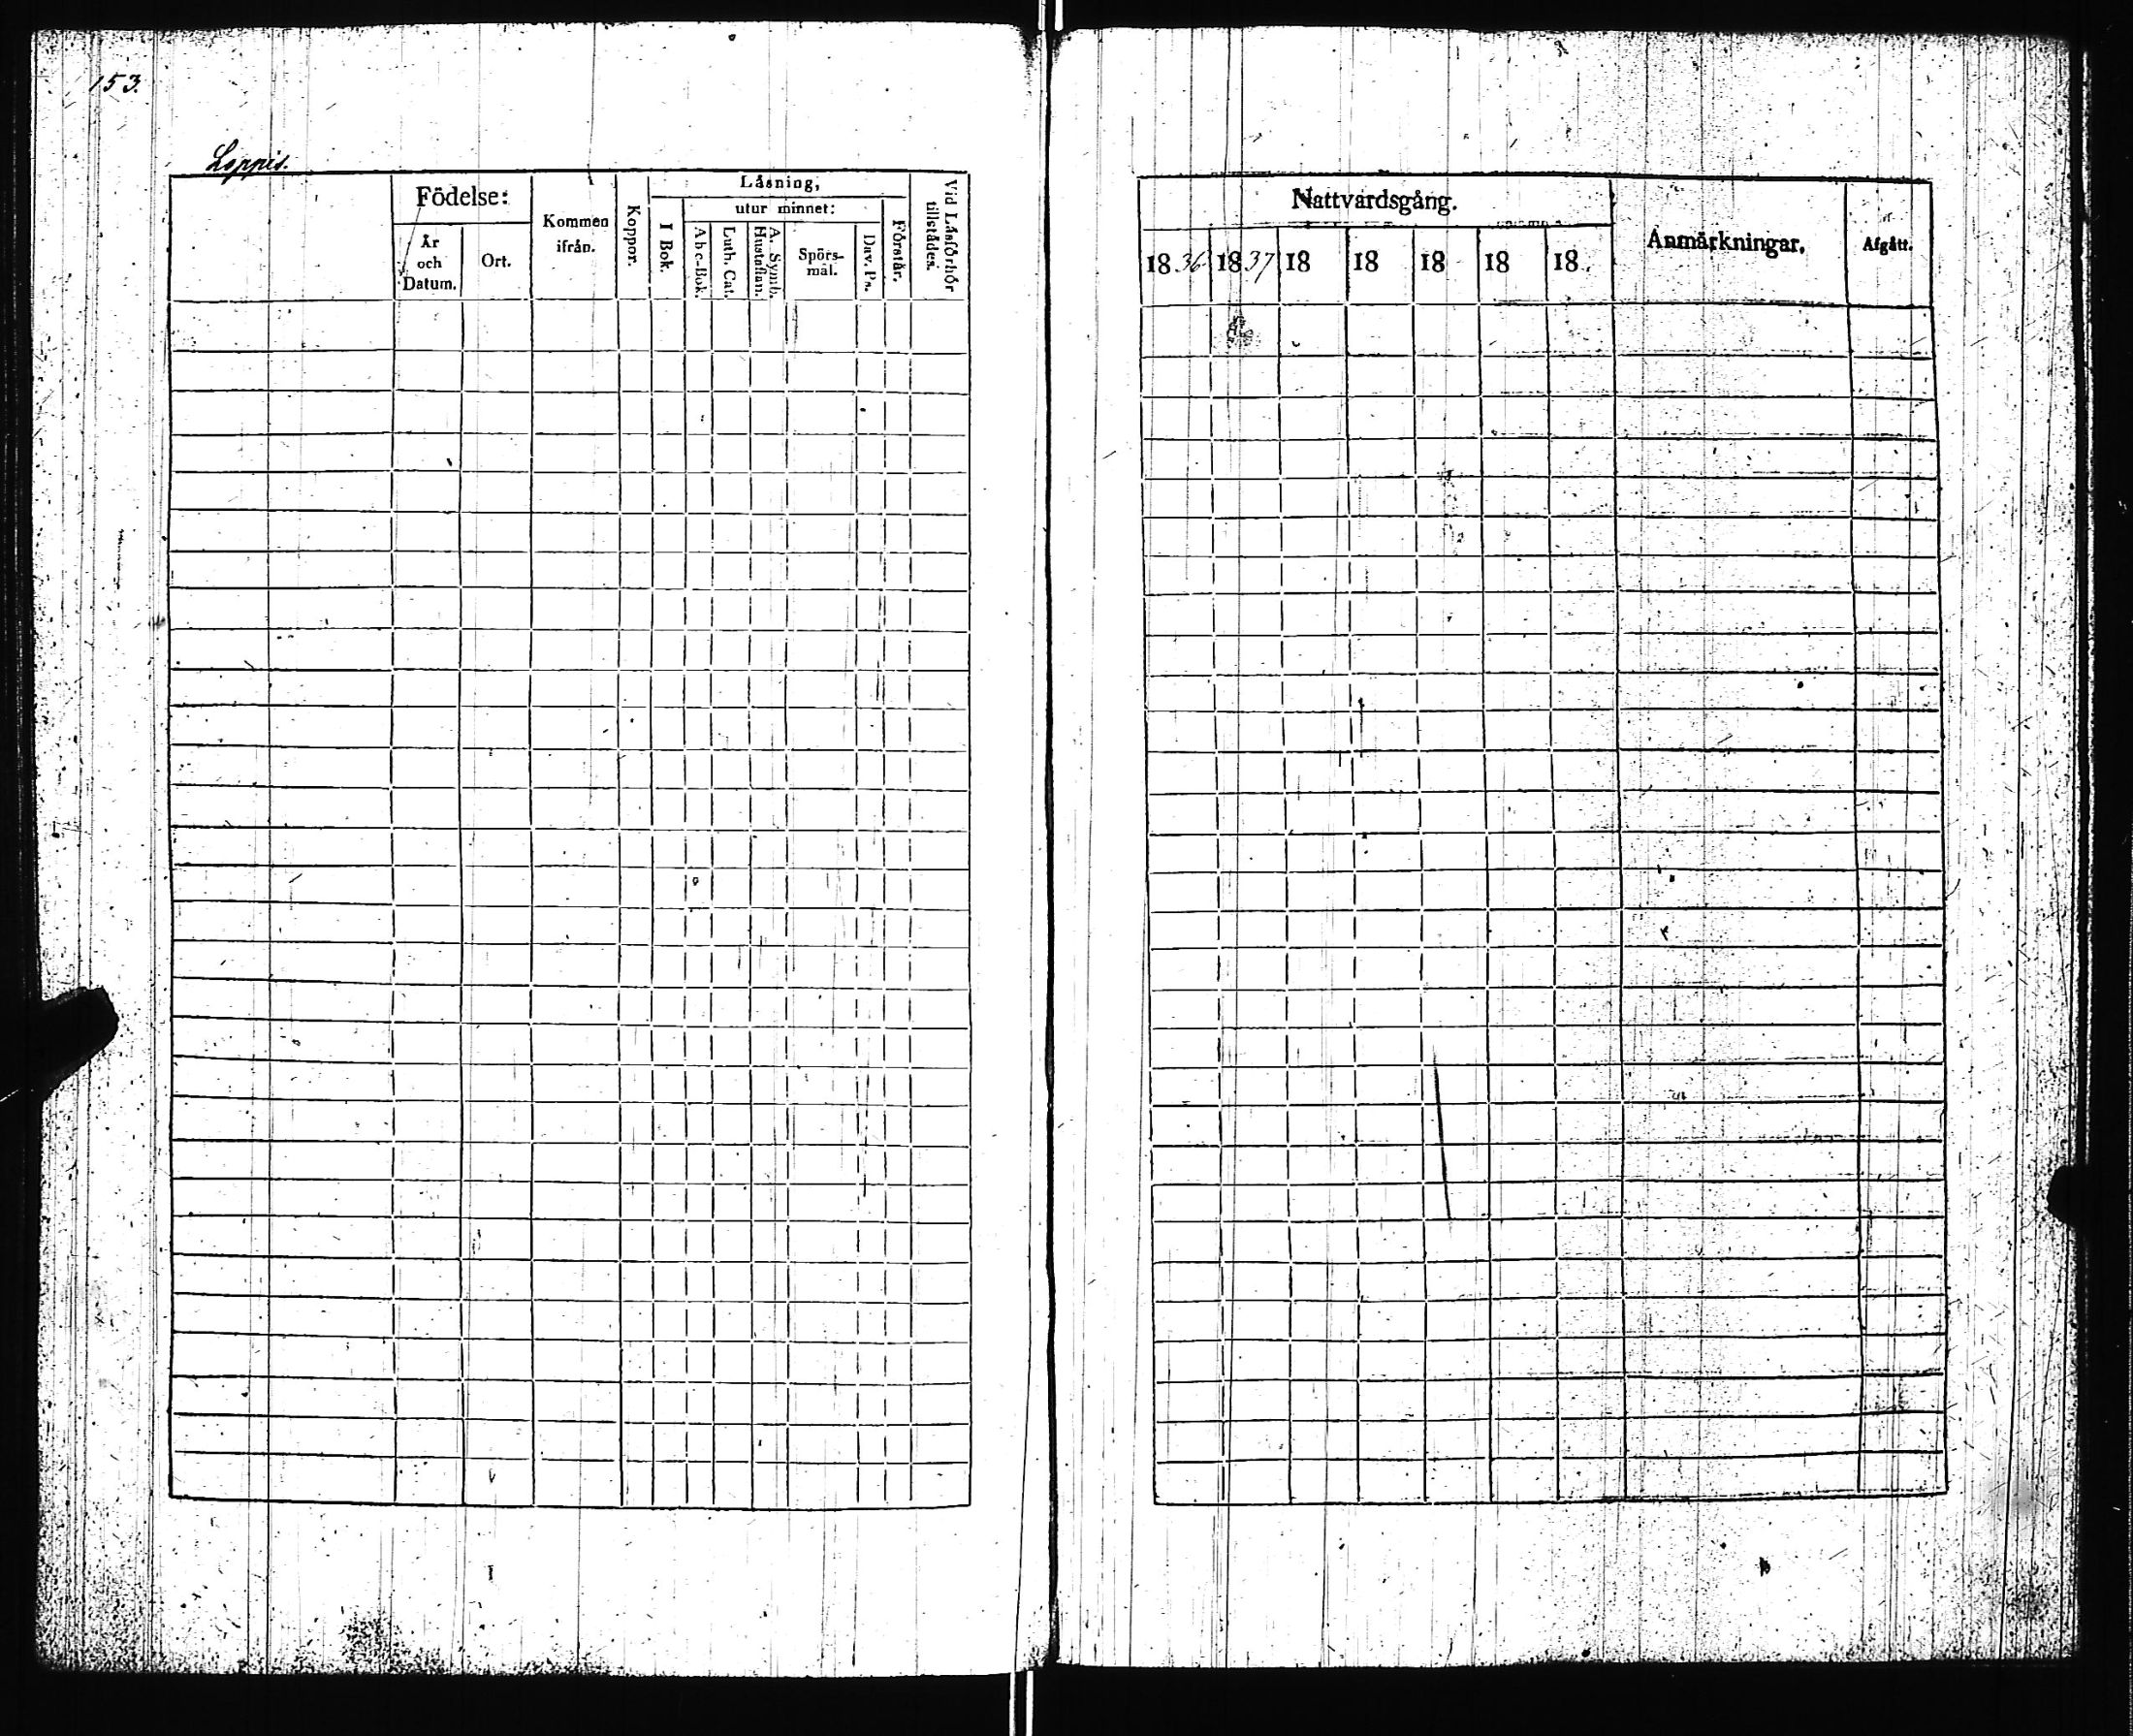 153.
Loppis.
Födelse:
År och Datum.
Ort.
Kommen ifrån.
Koppor.
Låsning,
I Bok.
utur minnet:
Abc-Bok.
Luth. Cat.
A. Symb. Hustaflan.
Spörs-mål.
Dav. Ps.
Förstår.
Vid Låsförhör tillstådes.
Nattvardsgång.
1836 1837 18 18 18 18 18
Anmärkningar.
Afgått.